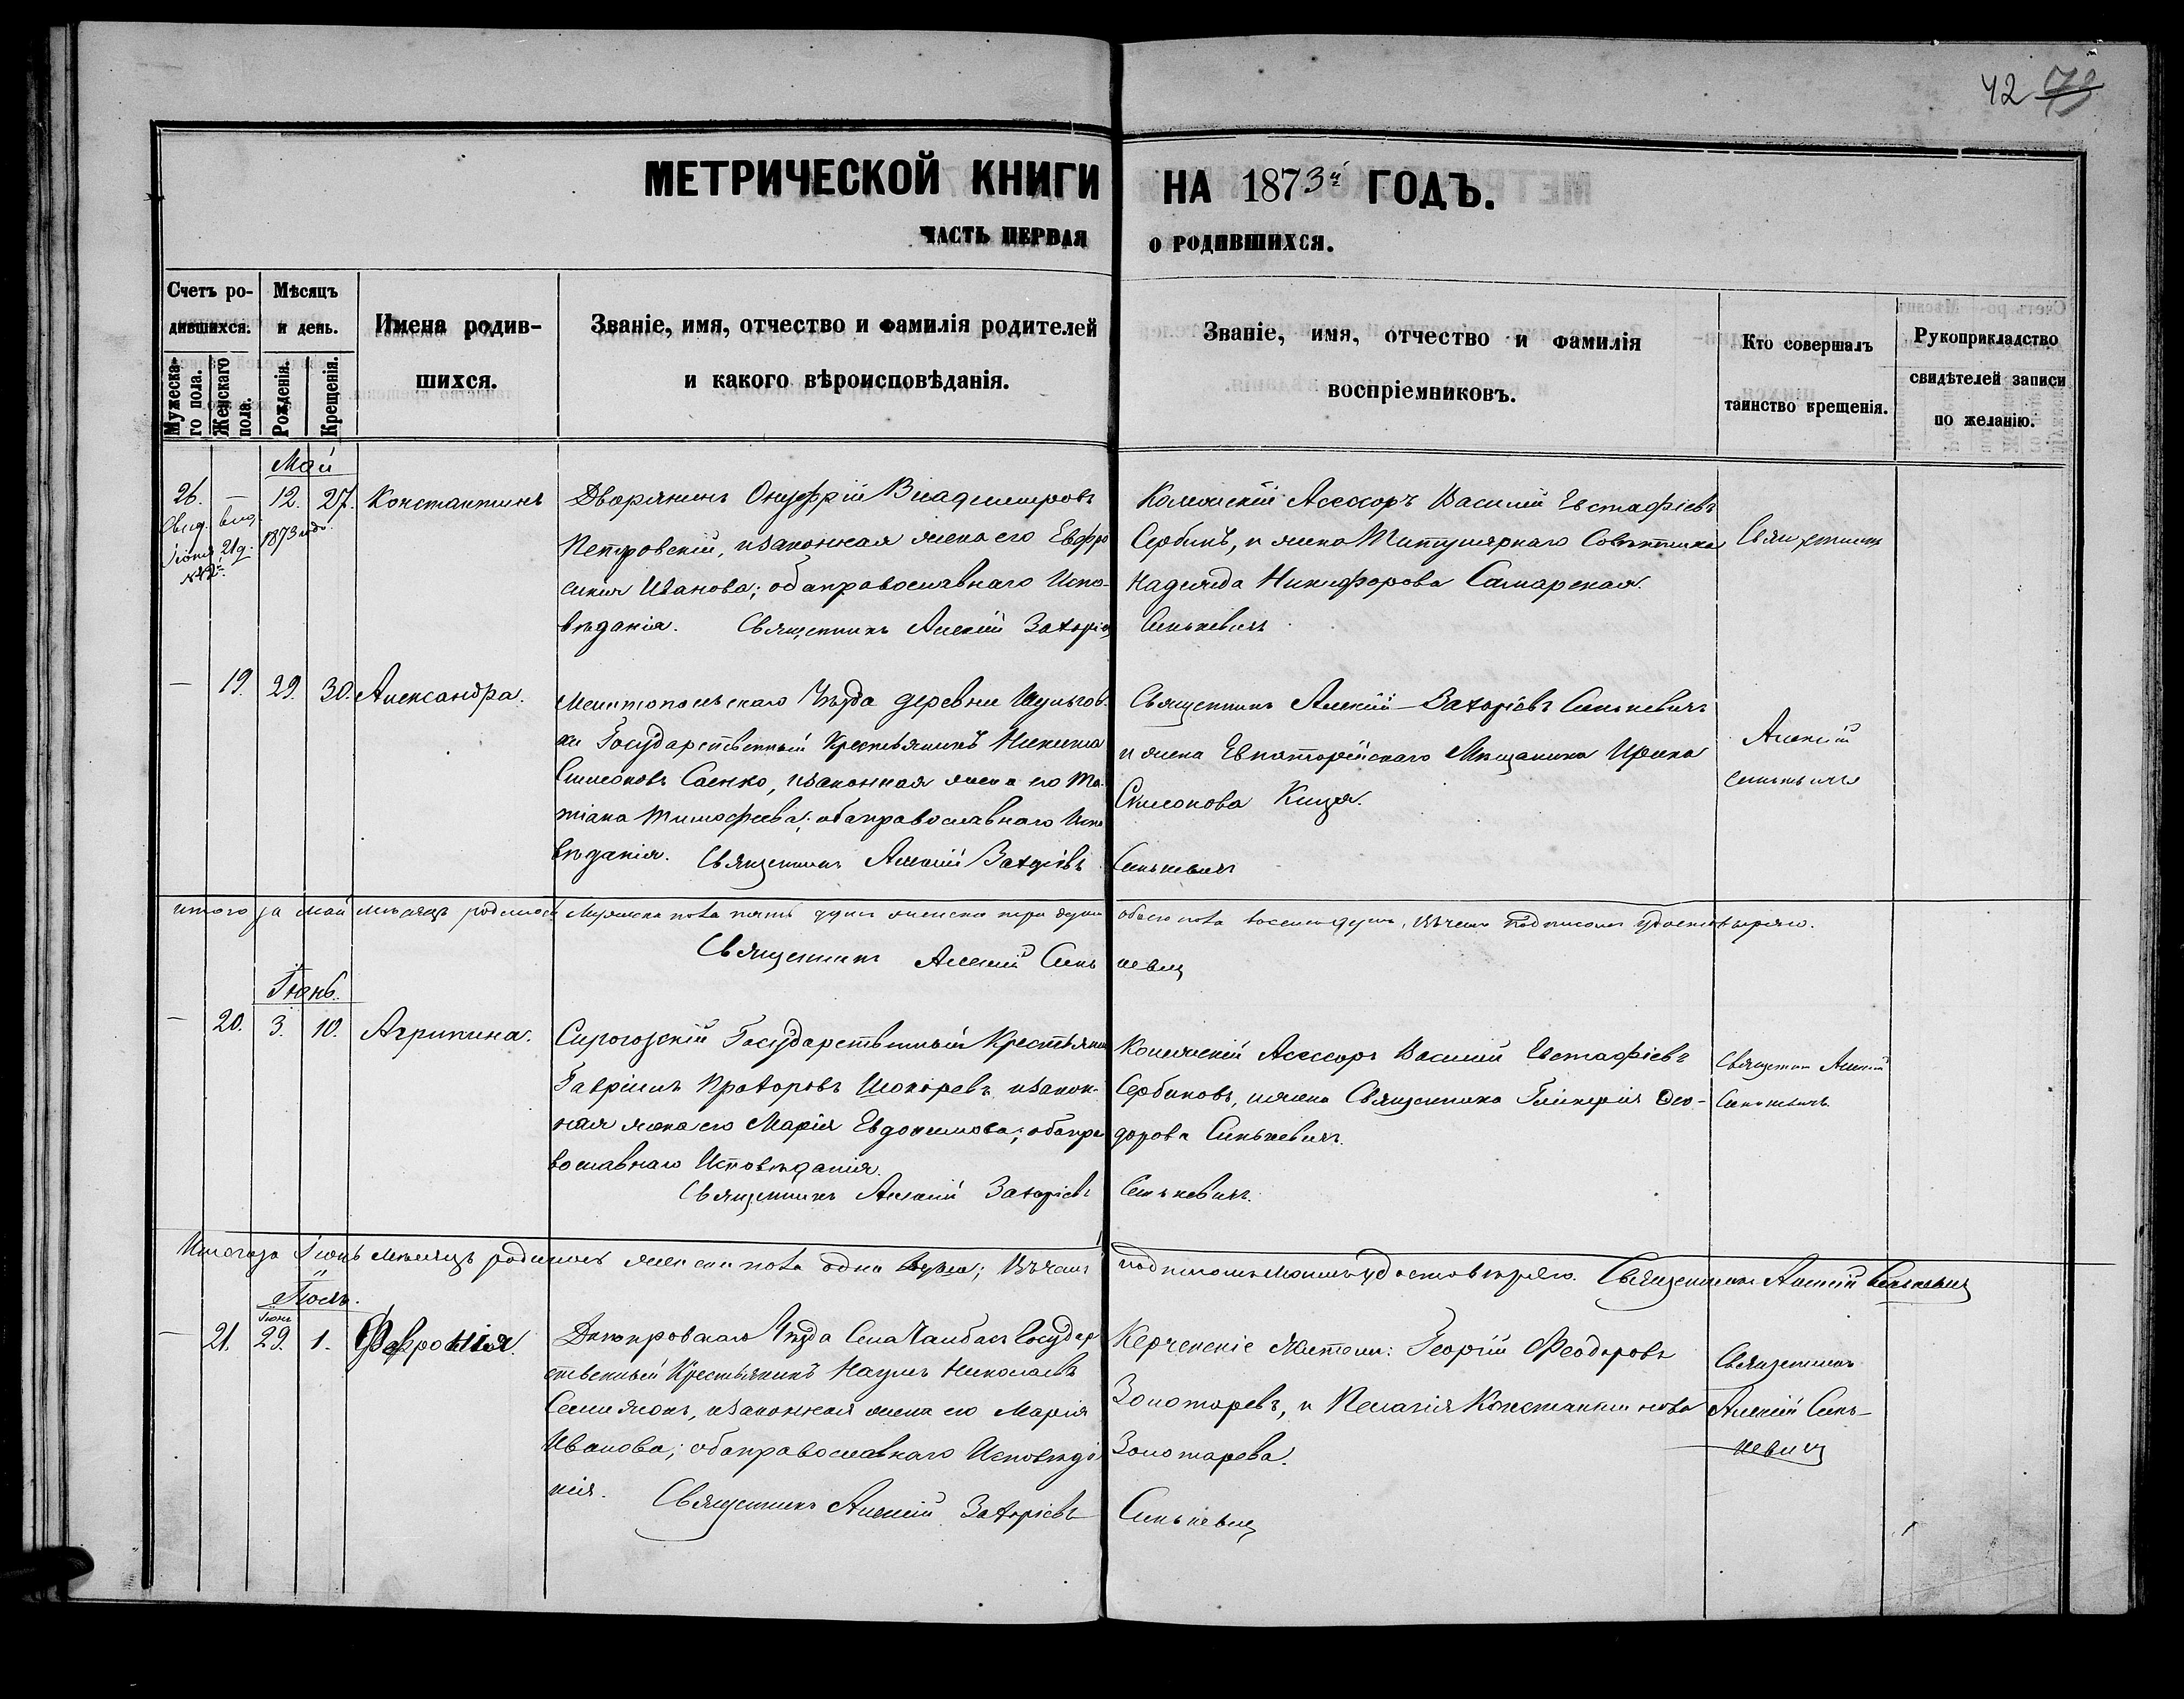 42 79
МЕТРИЧЕСКОЙ КНИГИ НА 1873й ГОДЪ.
ЧАСТЬ ПЕРВАЯ О РОДИВШИХСЯ.
Счетъ родившихся.
Мужескаго пола.
Женскаго пола.
Мѣсяцъ и день.
Рожденія.
Крещенія.
Имена родившихся.
Званіе, имя, отчество и фамилія родителей
и какого вѣроисповѣданія.
Званіе, имя, отчество и фамилія
воспріемниковъ.
Кто совершалъ
таинство крещенія.
Рукоприкладство
свидѣтелей записи
по желанію.
Май
26. — 12. 27. Константинъ
Свид. выд.
Іюня 21 д. 1873 года
№ 42
Дворянинъ Онуфрій Владимировъ
Петровскій, и законная жена его Евфро
синія Иванова; оба православнаго Испо-
вѣданія. Священникъ Алексій Захаріев
Колежскій Асессоръ Василій Евстафіевъ
Сербинъ, и жена Титулярнаго Совѣтника
Надежда Никифорова Самарская.
Синькевичъ
Священникъ
— 19. 29. 30. Александра.
Мелитопольскаго Уѣзда деревни Шульгов-
ки Государственный Крестьянинъ Никита
Симеоновъ Саенко, и законная жена его Та-
тіана Тимофеева; оба православнаго Испо
вѣданія. Священникъ Алексій Захаріевъ
Священникъ Алексій Захаріевъ Синькевичъ
и жена Евпаторійскаго Мѣщанина Ирина
Симонова
Синькевичъ
Алексій
Синькевичъ
итого за май мѣсяцъ родилось Мужеска пола пять душъ женска три души обоего пола восемь душъ, въ чемъ подписомъ удостовѣряю.
Священникъ Алексій Синь кевич
Іюнь.
— 20. 3. 10. Агрипина.
Сирогозскій Государственный Крестьянин
Гавріилъ Прохоровъ и закон-
ная жена его Марія Евдокимова; оба пра
вославнаго Исповѣданія.
Священникъ Алексій Захаріевъ
Колежскій Асессоръ Василій Евстафіевъ
Сербиновъ, и жена Священника Гликерія Фео-
дорова Синькевичъ.
Синькевичъ.
Священник Алексій
Синькевичъ
Итого за Іюнь мѣсяцъ родилось женска пола одна душа; Въ чемъ подписомъ моимъ удостовѣряю. Священникъ Алексій Синькевич
Іюль.
Іюня
— 21. 29. 1. Февронія.
Днепровскаго Уѣзда Села Чалбасъ Государ
ственный Крестьянинъ Наумъ Николаевъ
и законная жена его Марія
Иванова; оба православнаго Исповѣда
нія. Священникъ Алексій Захаріевъ
Керченскіе Жители: Георгій Феодоровъ
Золотаревъ, и Пелагія Константинова
Золотарева.
Синькевич
Священникъ
Алексій Синь-
кевич